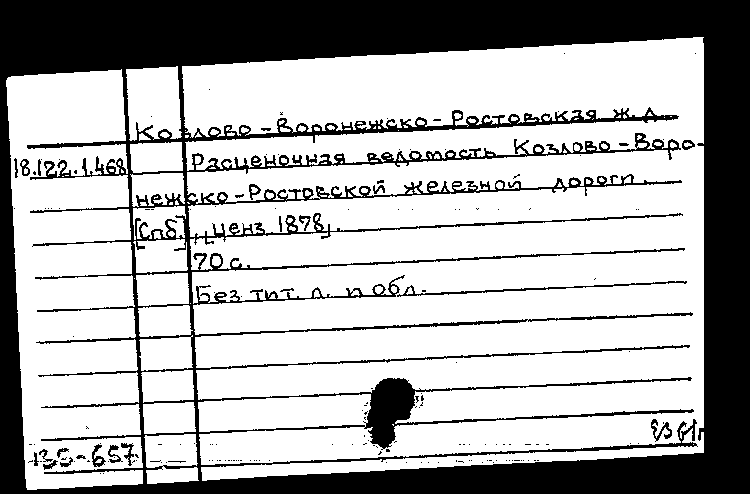 Козлово-Воронежско-Ростовская ж.д.
18.122.1.468 Расценочная ведомость Козлово-Воро-
нежско-Ростовской железной дороги.
[Спб.], ценз 1878.
70 с.
Без тит. л. и обл.
135-657